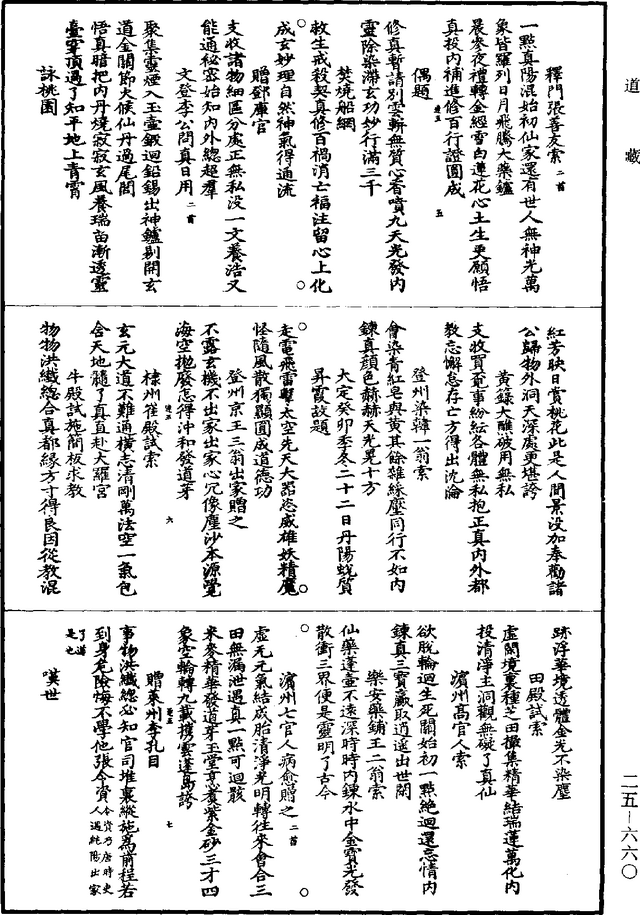 道藏
釋門張善友索二首
一點真陽混始初仙家還有世人無神光萬
象皆羅列日月飛騰大藥鑪
晨參夜禮轉金經雪白蓮花心上生更願悟
真投內補進修百行證圓成
偶題
五
修真暫請別雲軿無質心香噴九天光發內
靈除染滯玄功妙行滿三千
焚燒船網
救生戒殺契真修百禍消亡福注留心上化
成玄妙理自然神氣得通流
贈鄧庫官
支收諸物細區分處正無私没一文養浩又
能通秘密始知內外總超羣
文登李公問真日用二首
聚集靈煙入玉壺鍛迴鉛錫出神鑪剔開玄
道金關節火候仙丹過尾閭
悟真暗把內丹燒寂寂玄風養瑞苗漸透靈
臺穿頂過了知平地上青霄
詠桃園
紅芳映日賞桃花此是人間景没加奉勸諸
公歸物外洞天深處更堪誇
黃籙大醮破用無私
支收買賣事紛紜各體無私抱正真內外都
教忘懈怠存亡方得出沈淪
登州染韓一翁索
會染青紅皂與黃其餘雜綵壓同行不如內
鍊真顏色赫赫天光晃十方
大定癸卯季冬二十二日丹陽蛻質
昇霞故題
走電飛雷擊太空先天大器恣威雄妖精魔
怪隨風散獨顯圓成道德功
登州京王三翁出家贈之
不露玄機不出家出家心冗像塵沙本源覺
海空拋廢怎得沖和發道芽
六
棣州崔殿試索
玄元大道不難通橫志清剛萬法空一氣包
含天地髓了真直赴大羅宮
牛殿試施簡板求教
物物洪纖總合真都緣方寸得良因從教混
跡浮華境透體金光不染塵
田殿試索
虛閑境裏種芝田撮集精華結瑞蓮萬化內
投清淨主洞觀無礙了真仙
濱州高官人索
欲脫輪迴生死關始初一點絕迴還忘情內
鍊真三寶贏取逍遙出世間
樂安藥鋪王二翁索
仙藥蓬壺不遠深時時內鍊水中金寶光發
散衝三界便是靈明了古今
濱州七官人病愈贈之二首
虛无元氣結成胎清淨光明轉往來會合三
田無漏泄遇真一點可迴骸
來麥精華發道芽玉堂烹煑紫金砂三才四
象空輪轉九載攜雲蓬島誇
贈萊州李孔目
七
事物洪纖總必知官司堆裏縱施為前程若
到身危險悔不學他張令資令資乃唐時吏人遇純陽出家了道是也
嘆世
二五—六六〇